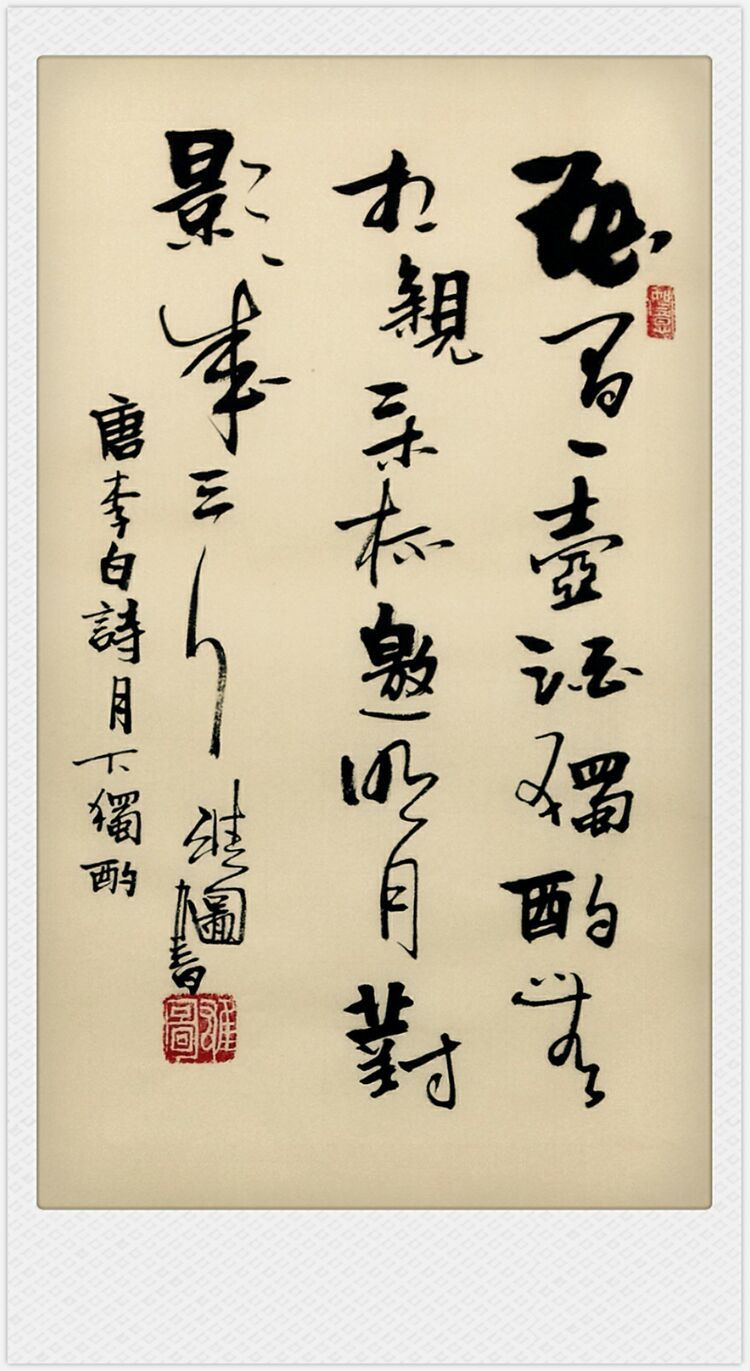 花間一壺酒獨酌無
相親舉杯邀明月對
影成三人 圖書
唐李白詩月下獨酌